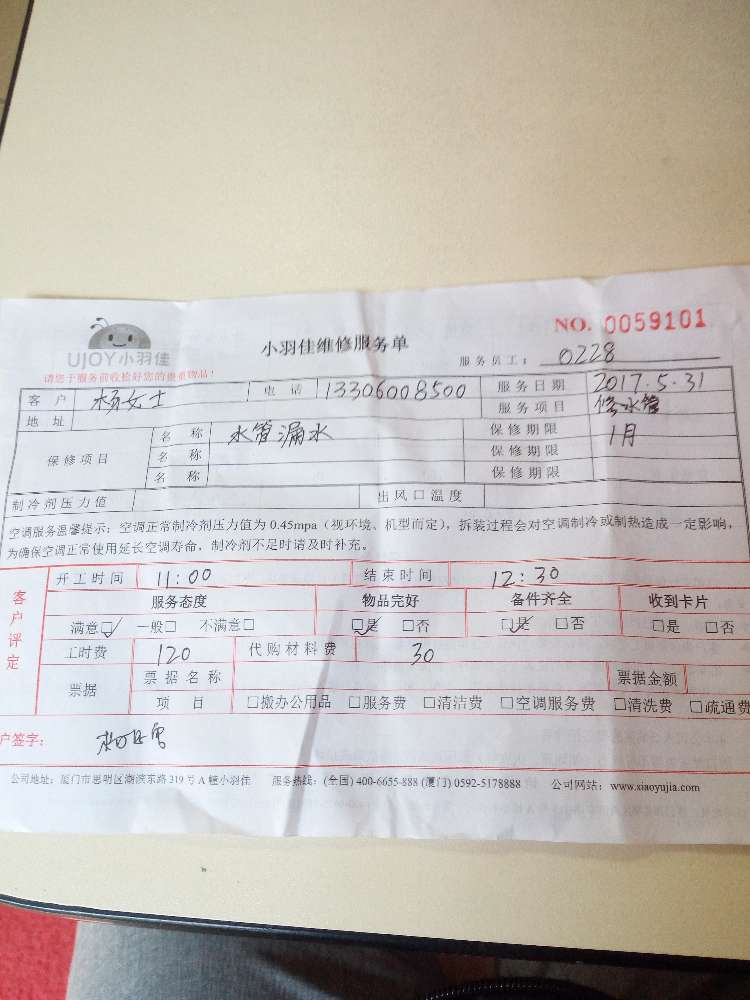 UJOY小羽佳
请您于服务前收检好您的贵重物品!
小羽佳维修服务单
NO. 0059101
服务员工: 0228
客户 杨女士 电话 13306008500 服务日期 2017.5.31
地址 服务项目 修水管
保修项目 名称 水管漏水 保修期限 1月
名称 保修期限
名称 保修期限
制冷剂压力值 出风口温度
空调服务温馨提示:空调正常制冷剂压力值为 0.45mpa(视环境、机型而定),拆装过程会对空调制冷或制热造成一定影响,
为确保空调正常使用延长空调寿命,制冷剂不足时请及时补充。
客户评定
开工时间 11:00 结束时间 12:30
服务态度 物品完好 备件齐全 收到卡片
满意☑ 一般□ 不满意□ ☑是 □否 ☑是 □否 □是 □否
工时费 120 代购材料费 30
票据 票据名称 票据金额
项目 □搬办公用品 □服务费 □清洁费 □空调服务费 □清洗费 □疏通费
户签字:
公司地址:厦门市思明区湖滨东路 319 号 A 幢小羽佳 服务热线:(全国) 400-6655-888 (厦门) 0592-5178888 公司网站:www.xiaoyujia.com